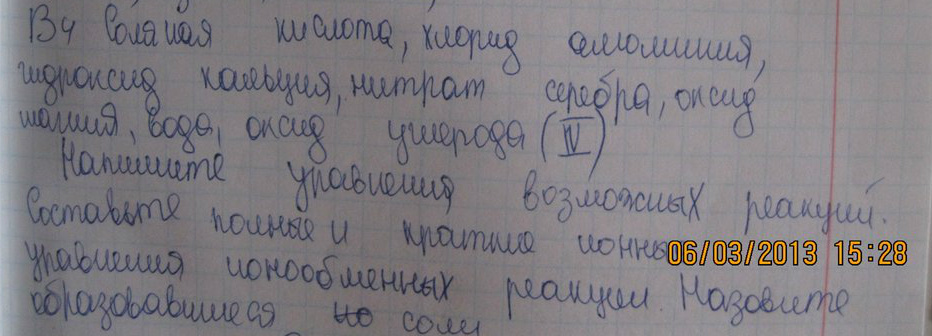 В4 Соляная кислота, хлорид алюминия,
гидроксид кальция, нитрат серебра, оксид
магния, вода, оксид углерода (IV)
Напишите уравнения возможных реакций.
Составьте полные и краткие ионны
06/03/2013 15:28
уравнения ионообменных реакции. Назовите
образовавшиеся но соли